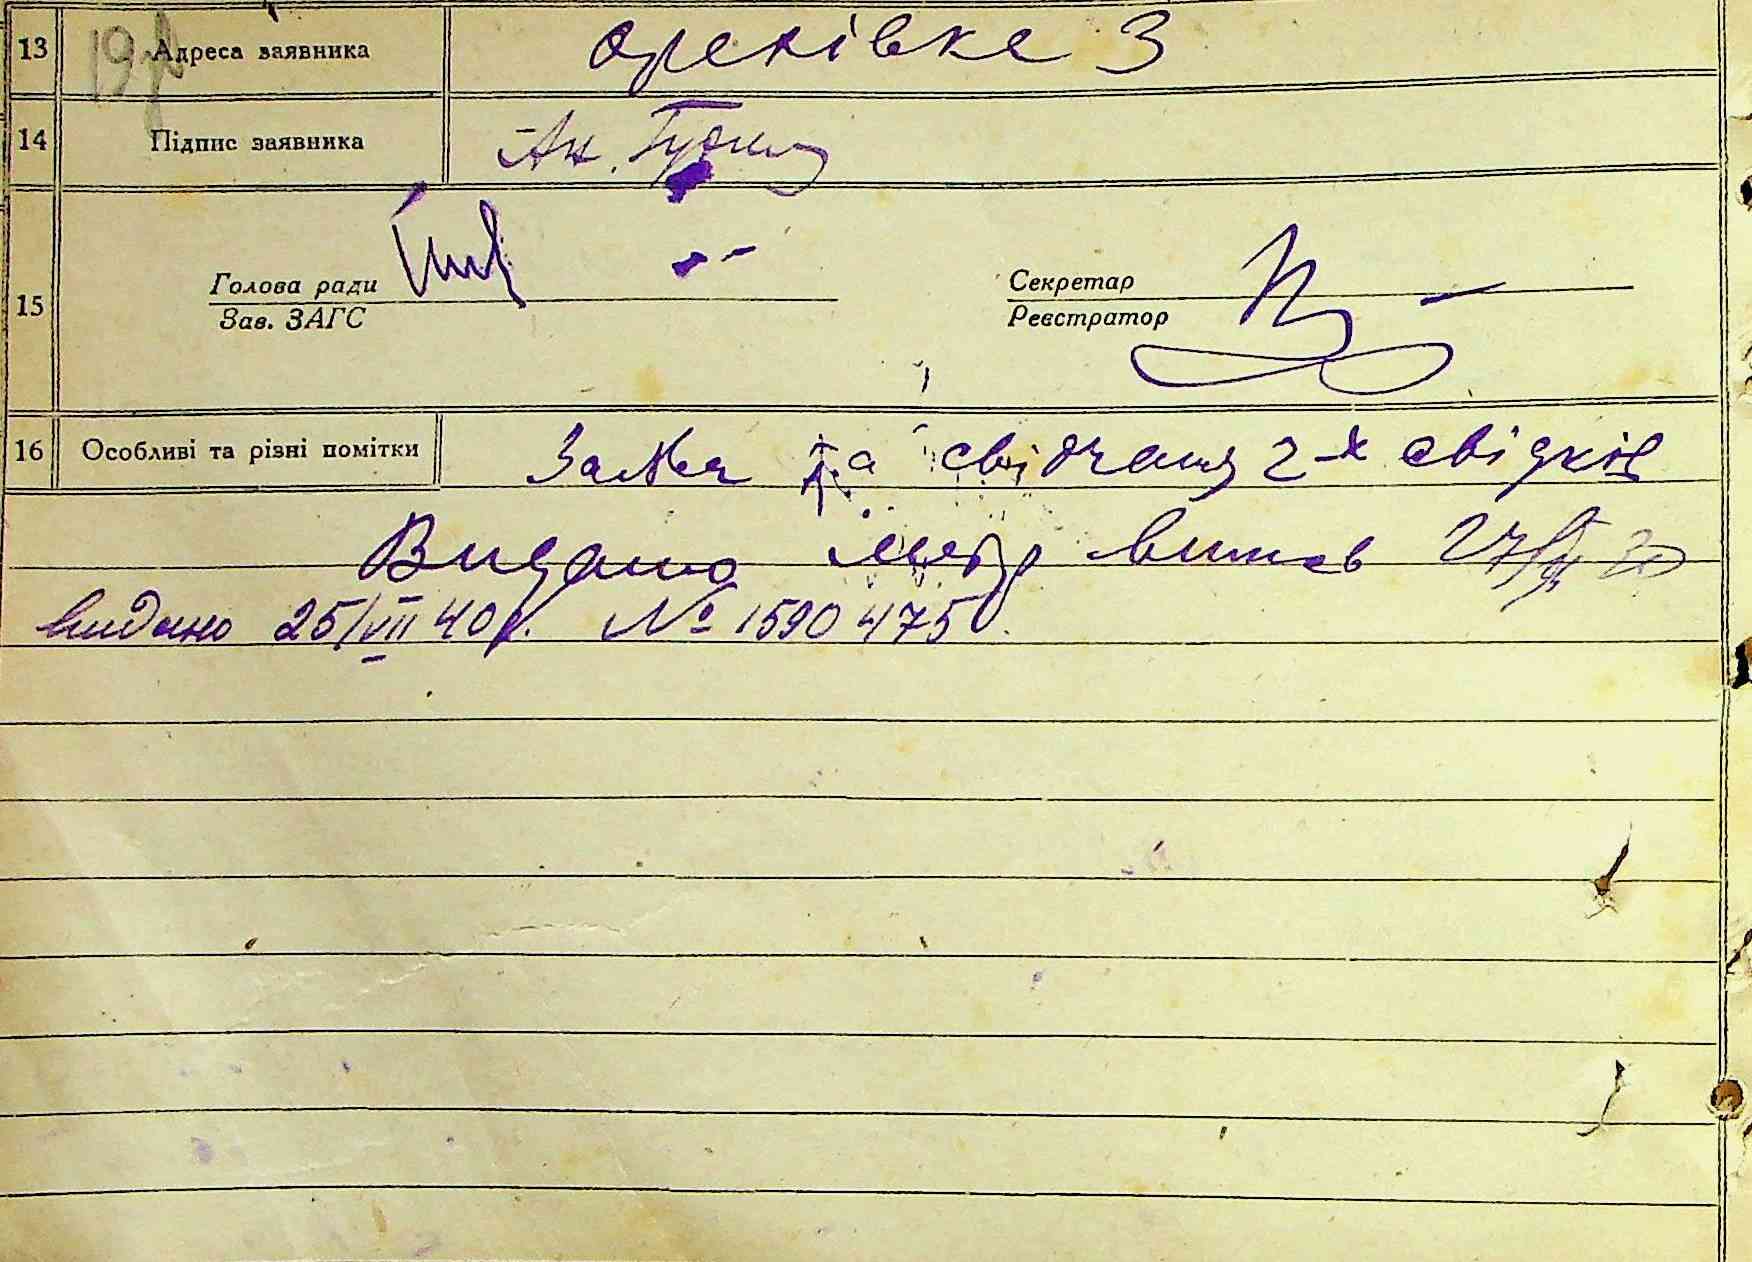 13 Адреса заявника Оренівка 3
14 Підпис заявника Ан.
15 Голова ради Секретар
Зав. ЗАГС Реєстратор
16 Особливі та різні помітки Заява та свідчання 2-х свідків
Видано метр
видано 25/VII 40р. № 1590475